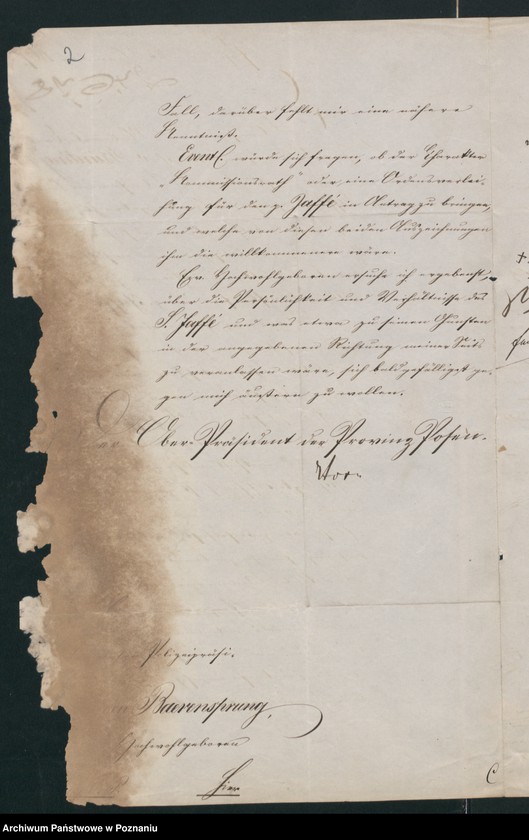 2
Fall, darüber fehlt mir eine nähere
Kenntniß.
Event. würde sich fragen, ob der Charakter
„Kommissionsrath“ oder eine Ordensverlei-
hung für den p. Jaffé in Antrag zu bringen,
und welche von diesen beiden Auszeichnungen
ihm die willkommenere wäre.
Ew. Hochwohlgeboren ersuche ich ergebenst,
über die Persönlichkeit und Verhältnisse des
S. Jaffé und was etwa zu seinen Gunsten
in der angegebenen Richtung meiner Seits
zu veranlassen wäre, sich baldgefälligst ge-
gen mich äußern zu wollen.
Ober-Präsident der Provinz Posen.
Polizeipräsi.
Baerensprung,
Hochwohlgeboren
Hier
Archiwum Państwowe w Poznaniu